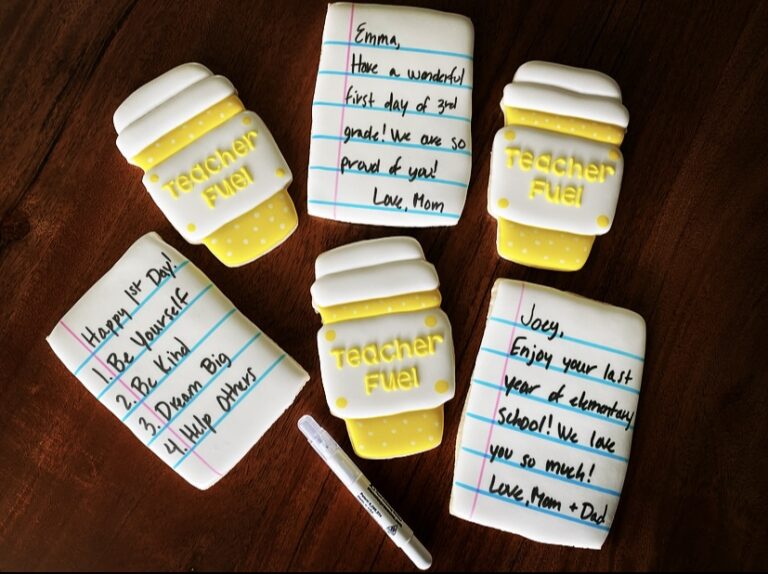 Emma,
Have a wonderful
first day of 3rd
grade! We are so
proud of you!
Love, Mom
Teacher
Fuel
Teacher
Fuel
Happy 1st Day!
1. Be Yourself
2. Be Kind
3. Dream Big
4. Help Others
Teacher
Fuel
Joey,
Enjoy your last
year of elementary
school! We love
you so much!
Love, Mom + Dad